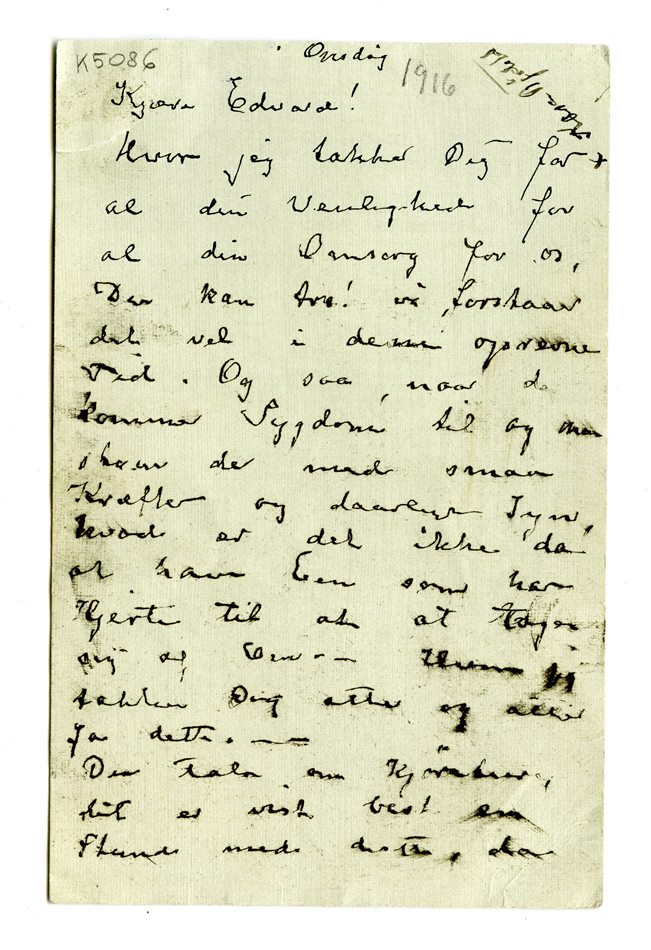 K5086
Onsdag
1916
Kjære Edvard!
Hvor jeg takker Dig for
al din Venlighed for
al din Omsorg for os,
Du kan tro! vi forstaar
det vel i denne oprevne
Tid. Og saa, naar de
kommer Sygdom til og man
staar der med smaa
Kræfter og daarligt Syn,
hvad er det ikke da
at have Een som har
Hjerte til at tage
sig af Den — Hvor jeg
takker Dig atter og atter
for dette. —
Du taler om
det er vist best en
Stund med dette, da